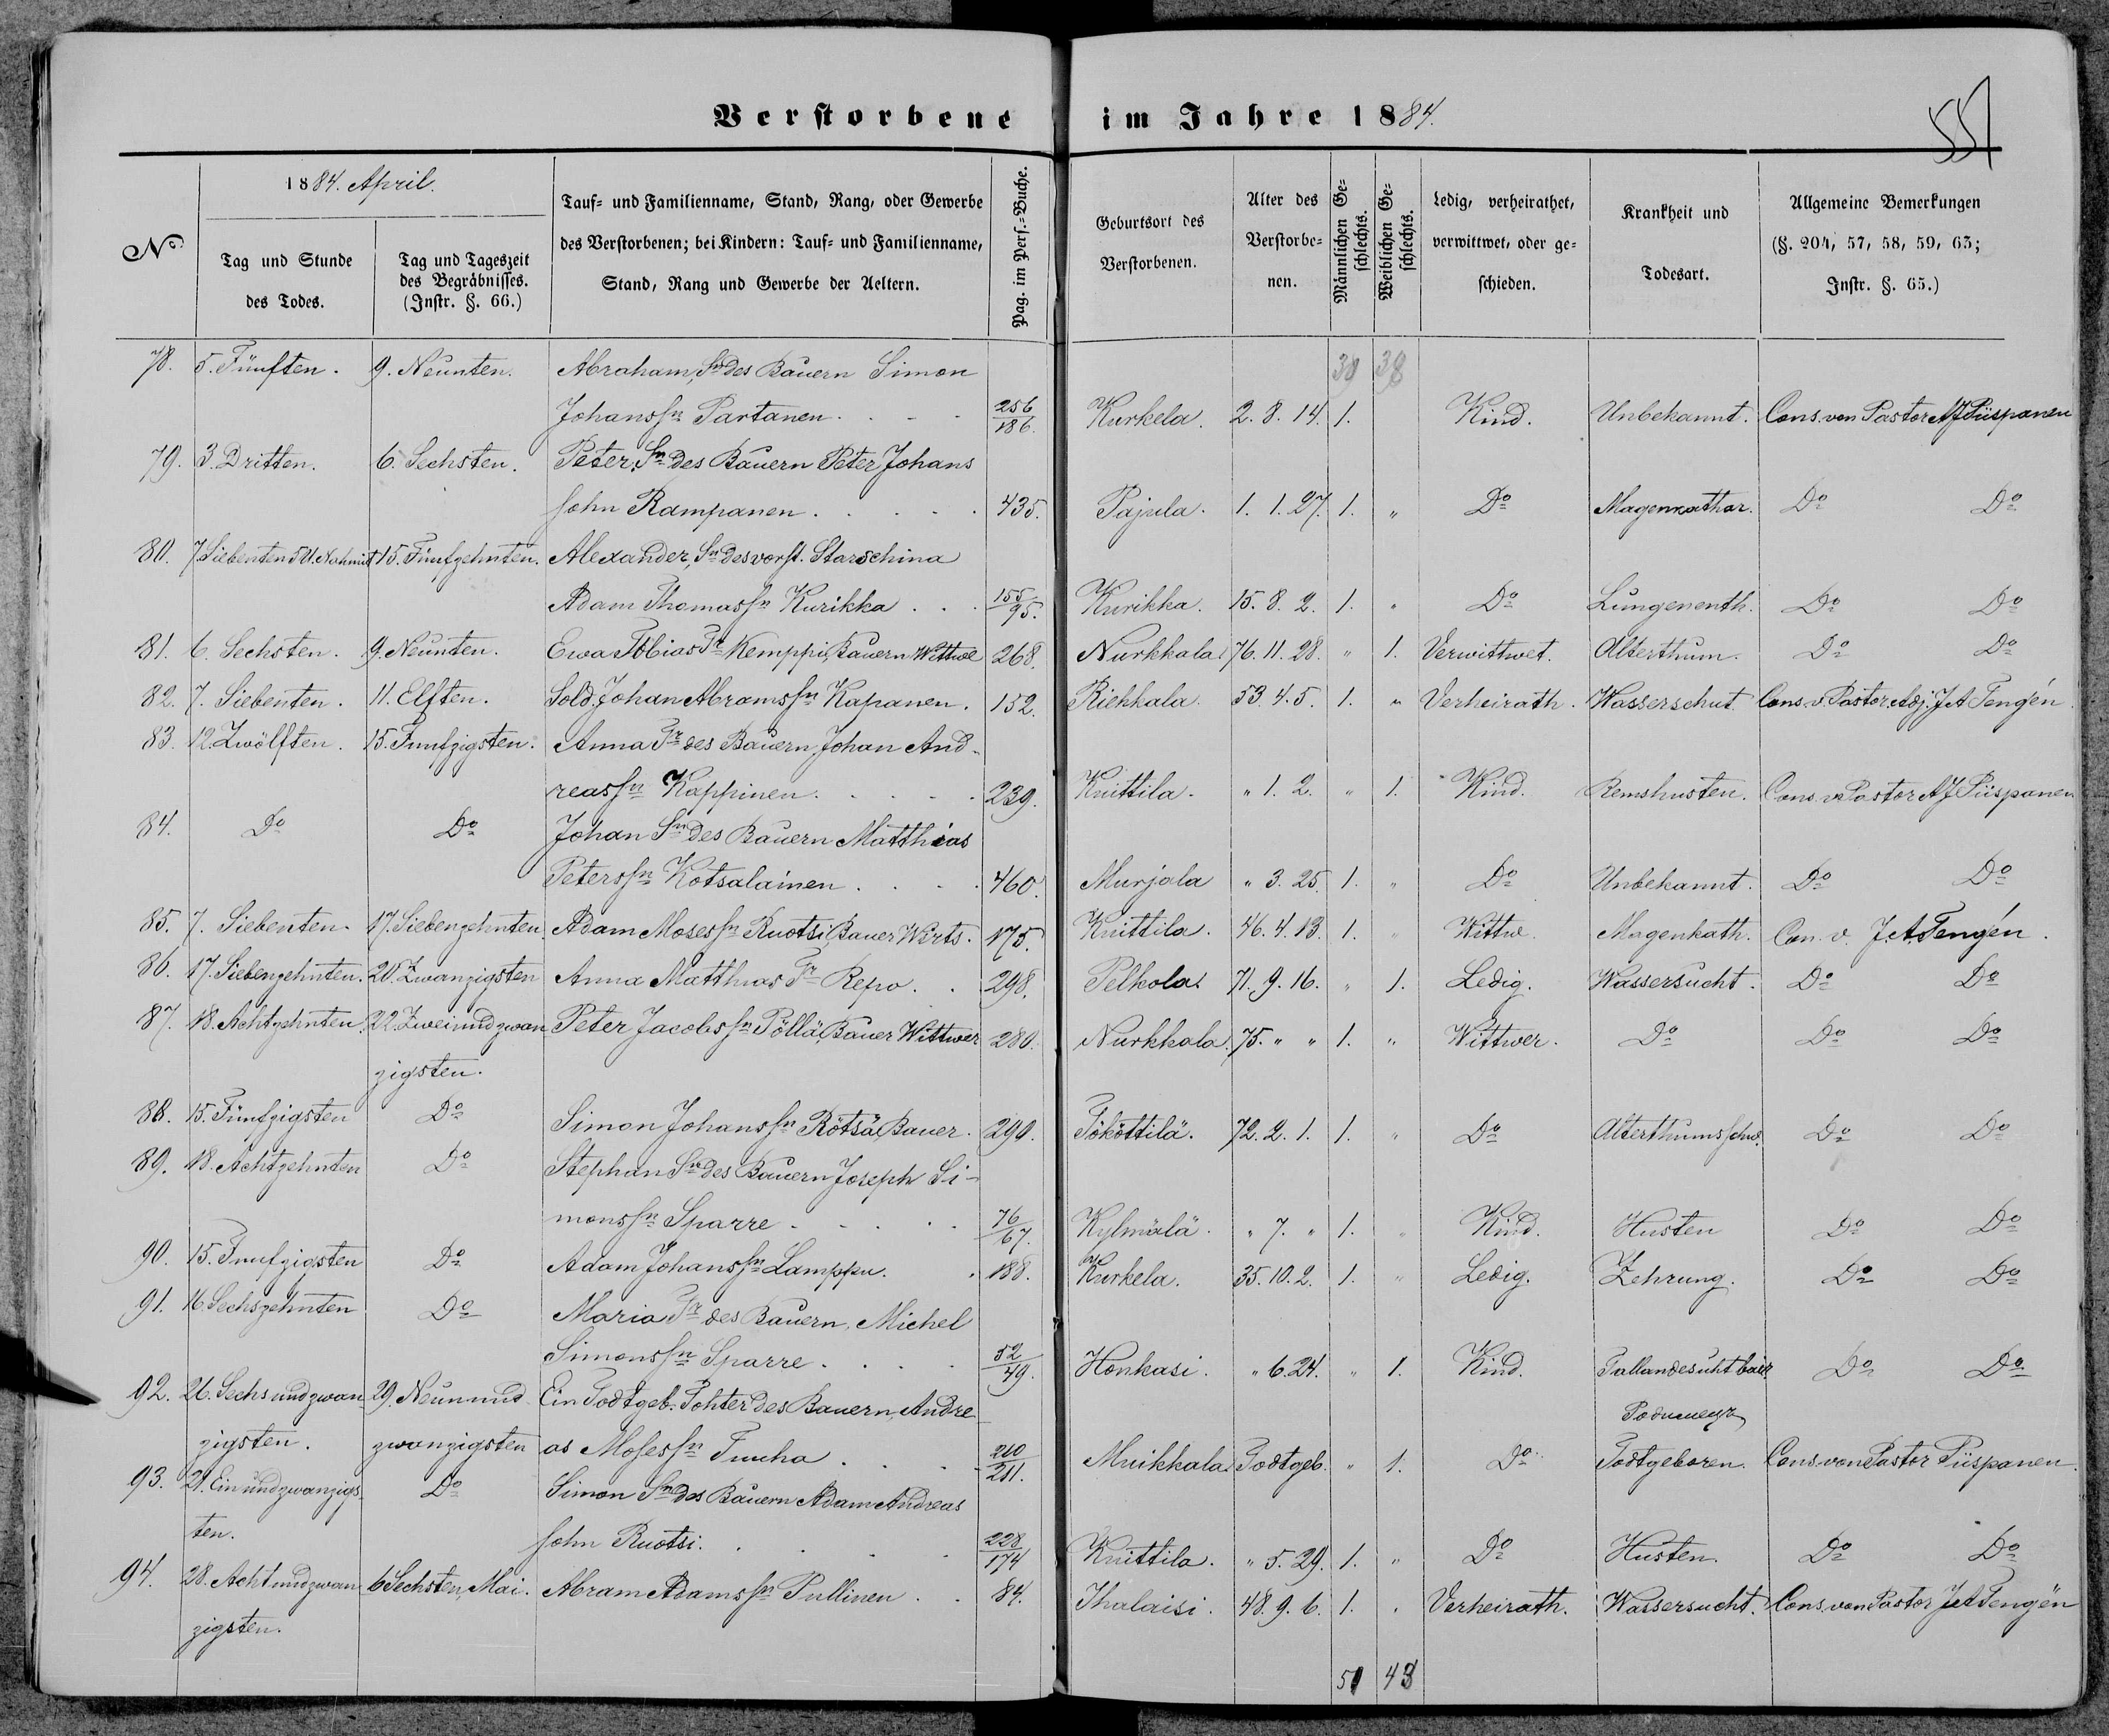 Verstorbene im Jahre 1884.
551
1884. April.
No
Tag und Stunde
des Todes.
Tag und Tageszeit
des Begräbnisses.
(Instr. §. 66.)
Tauf- und Familienname, Stand, Rang, oder Gewerbe
des Verstorbenen; bei Kindern: Tauf- und Familienname,
Stand, Rang und Gewerbe der Aeltern.
Pag. im Pers.-Buche.
Geburtsort des
Verstorbenen.
Alter des
Verstorbe-
nen.
Männlichen Ge-
schlechts.
Weiblichen Ge-
schlechts.
Ledig, verheirathet,
verwittwet, oder ge-
schieden.
Krankheit und
Todesart.
Allgemeine Bemerkungen
(§. 204, 57, 58, 59, 63;
Instr. §. 65.)
78. 5. Fünften. 9. Neunten. Abraham, Sn des Bauern Simon 38 38
Johanssn Partanen 256/186. Kurkela. 2. 8. 14. 1. Kind. Unbekannt. Cons. von Pastor AJ Piispanen
79. 3. Dritten. 6. Sechsten. Peter, Sn des Bauern Peter Johans
sohn Rampanen 435. Pajula. 1. 1. 27. 1. " Do Magenkathar. Do Do
80. 7 Siebenten 5 U. Nahmit 15. Fünfzehnten. Alexander, Sn des vorst. Starschina
Adam Thomassn Kurikka 155/95. Kurikka. 15. 8. 2. 1. " Do Lungenenth. Do Do
81. 6. Sechsten. 9. Neunten. Ewa Tobias Tr Kemppi, Bauern Wittwe 268. Nurkkala. 76. 11. 28. " 1. Verwittwet. Alterthum. Do Do
82. 7. Siebenten. 11. Elften. Sold. Johan Abramssn Kapanen. 152. Riehkala. 53. 4. 5. 1. " Verheirath. Wasserschut Cons. v. Pastor. Adj. JA Tengén
83. 12. Zwölften. 15. Funfzigsten. Anna Tr des Bauern Johan And-
reassn Kappinen. 239. Knittila. " 1. 2. " 1. Kind. Remshusten. Cons. v Pastor AJ Piispanen
84. Do Do Johan Sn des Bauern Matthias
Peterssn Kotsalainen 460. Murjala " 3. 25. 1. " Do Unbekannt. Do Do
85. 7. Siebenten. 17. Siebenzehnten. Adam Mosessn Ruotsi, Bauer Wirts. 175. Knittila. 46. 4. 13. 1. " Wittw. Magenkath. Con. v. J. A. Tengén.
86. 17. Siebenzehnten. 20. Zwanzigsten Anna Matthias Tr Repo. 298. Pelkola. 71. 9. 16. " 1. Ledig. Wassersucht. Do Do
87. 18. Achtzehnten. 22. Zweiund zwan Peter Jacobssn Pöllä, Bauer Wittwer 280. Nurkkala. 75. " " 1. " Wittwer. Do Do Do
zigsten.
88. 15. Fünfzigsten Do Simon Johanssn Rötsä, Bauer. 290. Tököttilä. 72. 2. 1. 1. " Do Alterthumsschw. Do Do
89. 18. Achtzehnten Do Stephan Sn des Bauern Joseph Si-
monssn Sparre 76/67. Kylmälä. " 7. " 1. " Kind. Husten Do Do
90. 15. Funfzigsten Do Adam Johanssn Lamppu. 188. Kurkela. 35. 10. 2. 1. " Ledig. Zehrung. Do Do
91. 16 Sechszehnten Do Maria Tr des Bauern Michel
Simonssn Sparre 52/49. Honkasi. " 6. 24. " 1. Kind. Do Do
92. 26. Sechs und zwan 29. Neunund Ein Todtgeb. Tohter des Bauern Andre
zigsten. zwanzigsten as Mosessn Tuuha 210/211. Muikkala. Todtgeb. " 1. Do Todtgeboren. Cons. von Pastor Piispanen.
93. 21. Ein und zwanzigs Do Simon Sn des Bauern Adam Andreas
ten. sohn Ruotsi. 228/174 Knittila. " 5. 29. 1. " Do Husten. Do Do
94. 28. Acht und zwan 6 Sechsten, Mai. Abram Adamssn Pullinen 84. Ihalaisi. 48. 9. 6. 1. " Verheirath. Wassersucht. Cons. von Pastor JA Tengén
zigsten.
51 43